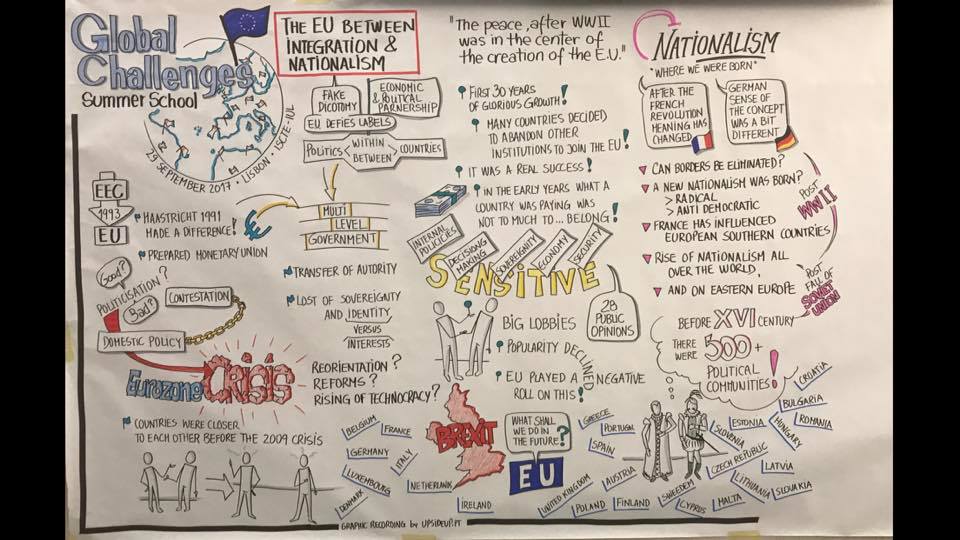 Global
Challenges
Summer School
29 SEPTEMBER 2017 • LISBON • ISCTE-IUL
THE EU BETWEEN
INTEGRATION &
NATIONALISM
FAKE
DICOTOMY
ECONOMIC
& POLITICAL
PARNERSHIP
EU DEFIES LABELS
POLITICS
WITHIN
BETWEEN
COUNTRIES
MULTI
LEVEL
GOVERNMENT
"The peace, after WWII
was in the center of
the creation of the E.U."
FIRST 30 YEARS
OF GLORIOUS GROWTH!
MANY COUNTRIES DECIDED
TO ABANDON OTHER
INSTITUTIONS TO JOIN THE EU!
IT WAS A REAL SUCCESS!
IN THE EARLY YEARS WHAT A
COUNTRY WAS PAYING WAS
NOT TO MUCH TO... BELONG!
NATIONALISM
"WHERE WE WERE BORN"
AFTER THE
FRENCH
REVOLUTION
MEANING HAS
CHANGED
GERMAN
SENSE OF
THE CONCEPT
WAS A BIT
DIFFERENT
CAN BORDERS BE ELIMINATED?
A NEW NATIONALISM WAS BORN?
> RADICAL
> ANTI DEMOCRATIC
FRANCE HAS INFLUENCED
EUROPEAN SOUTHERN COUNTRIES
RISE OF NATIONALISM ALL
OVER THE WORLD,
AND ON EASTERN EUROPE
POST
WWII
POST
FALL OF
SOVIET
UNION!
EEC
1993
EU
MAASTRICHT 1991
MADE A DIFFERENCE!
€
PREPARED MONETARY UNION
GOOD?
POLITICISATION?
BAD?
CONTESTATION
DOMESTIC POLICY
Eurozone
CRISIS
COUNTRIES WERE CLOSER
TO EACH OTHER BEFORE THE 2009 CRISIS
TRANSFER OF AUTORITY
LOST OF SOVEREIGNITY
AND IDENTITY
VERSUS
INTERESTS
REORIENTATION?
REFORMS?
RISING OF TECHNOCRACY?
INTERNAL
POLICICIES
DECISIONG
MAKING
SOVEREIGNITY
ECONOMY
SECURITY
SENSITIVE
28
PUBLIC
OPINIONS
BIG LOBBIES
POPULARITY DECLINED
EU PLAYED A NEGATIVE
ROLL ON THIS!
BREXIT
WHAT SHALL
WE DO IN
THE FUTURE?
EU
BEFORE XVI CENTURY
THERE
WERE
500+
POLITICAL
COMMUNITIES!
BELGIUM
FRANCE
GERMANY
ITALY
LUXEMBOURG
NETHERLANDS
DENMARK
IRELAND
GREECE
PORTUGAL
SPAIN
UNITED KINGDOM
AUSTRIA
POLAND
FINLAND
SWEEDEM
CYPRUS
MALTA
SLOVENIA
ESTONIA
CZECH REPUBLIC
HUNGARY
LITHUANIA
LATVIA
SLOVAKIA
ROMANIA
BULGARIA
CROATIA
GRAPHIC RECORDING by UPSIDEUP.PT